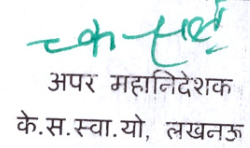 अपर महानिदेशक
के.स.स्वा.यो, लखनऊ